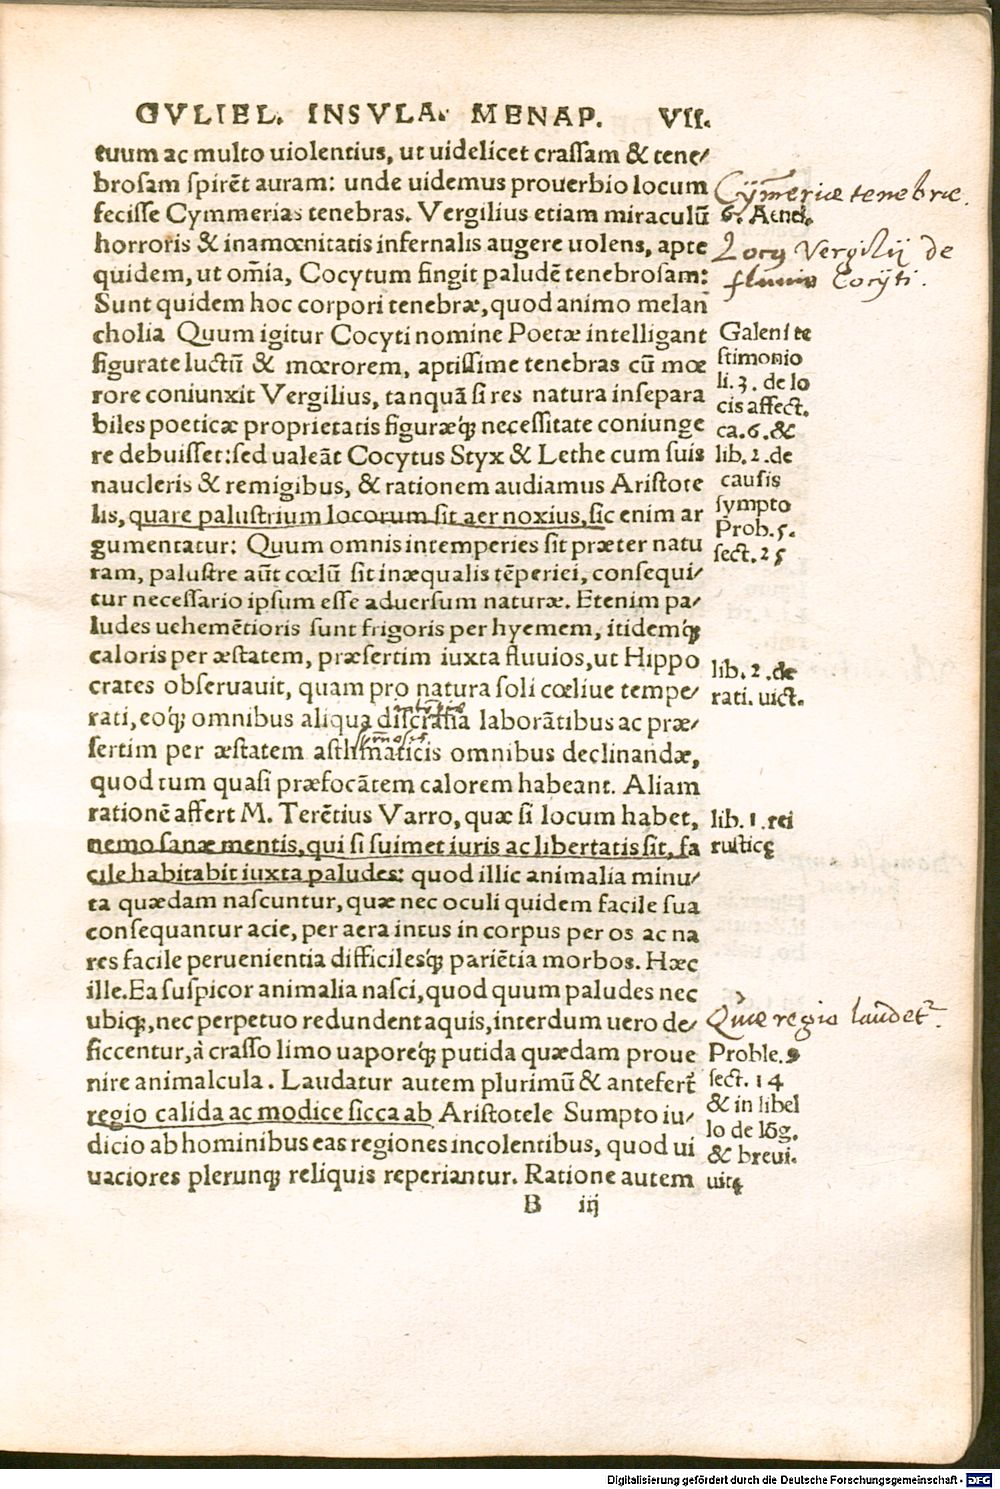 GVLIEL. INSVLA. MENAP. VII.
tuum ac multo uiolentius, ut uidelicet crassam & tene/
brosam spirẽt auram: unde uidemus prouerbio locum
fecisse Cymmerias tenebras. Vergilius etiam miraculũ
horroris & inamœnitatis infernalis augere uolens, apte
quidem, ut om̃ia, Cocytum fingit paludẽ tenebrosam:
Sunt quidem hoc corpori tenebræ, quod animo melan
cholia Quum igitur Cocyti nomine Poetæ intelligant
figurate luctũ & mœrorem, aptissime tenebras cũ mœ
rore coniunxit Vergilius, tanquã si res natura insepara
biles poeticæ proprietatis figuræq́; necessitate coniunge
re debuisset: sed ualeãt Cocytus Styx & Lethe cum suis
naucleris & remigibus, & rationem audiamus Aristote
lis, quare palustrium locorum sit aer noxius, sic enim ar
gumentatur: Quum omnis intemperies sit præter natu
ram, palustre aũt cœlũ sit inæqualis tẽperiei, consequi/
tur necessario ipsum esse aduersum naturæ. Etenim pa/
ludes uehemẽtioris sunt frigoris per hyemem, itidemq́;
caloris per æstatem, præsertim iuxta fluuios, ut Hippo
crates obseruauit, quam pro natura soli cœliue tempe/
rati, eoq́; omnibus aliqua discrasia laborãtibus ac præ/
sertim per æstatem asthmaticis omnibus declinandæ,
quod tum quasi præfocãtem calorem habeant. Aliam
rationẽ affert M. Terẽtius Varro, quæ si locum habet,
nemo sanæ mentis, qui si suimet iuris ac libertatis sit, fa
cile habitabit iuxta paludes: quod illic animalia minu/
ta quædam nascuntur, quæ nec oculi quidem facile sua
consequantur acie, per aera intus in corpus per os ac na
res facile peruenientia difficilesq́; pariẽtia morbos. Hæc
ille. Ea suspicor animalia nasci, quod quum paludes nec
ubiq;, nec perpetuo redundent aquis, interdum uero de/
siccentur, à crasso limo uaporeq́; putida quædam proue
nire animalcula. Laudatur autem plurimũ & antefert̃
regio calida ac modice sicca ab Aristotele Sumpto iu/
dicio ab hominibus eas regiones incolentibus, quod ui
uaciores plerunq; reliquis reperiantur. Ratione autem
B iij
Cym̃eriæ tenebræ.
6. Aenei.
Locus Vergilij de
fluuio Cocyti.
Galeni te
stimonio
li. 3. de lo
cis affect.
ca. 6. &
lib. 2. de
causis
sympto
Prob. 5.
sect. 25
lib. 2. de
rati. uict.
lib. 1. rei
rusticę
Quæ regio laudet̃.
Proble. 9
sect. 14
& in libel
lo de lõg.
& breui.
uitę
Digitalisierung gefördert durch die Deutsche Forschungsgemeinschaft - DFG